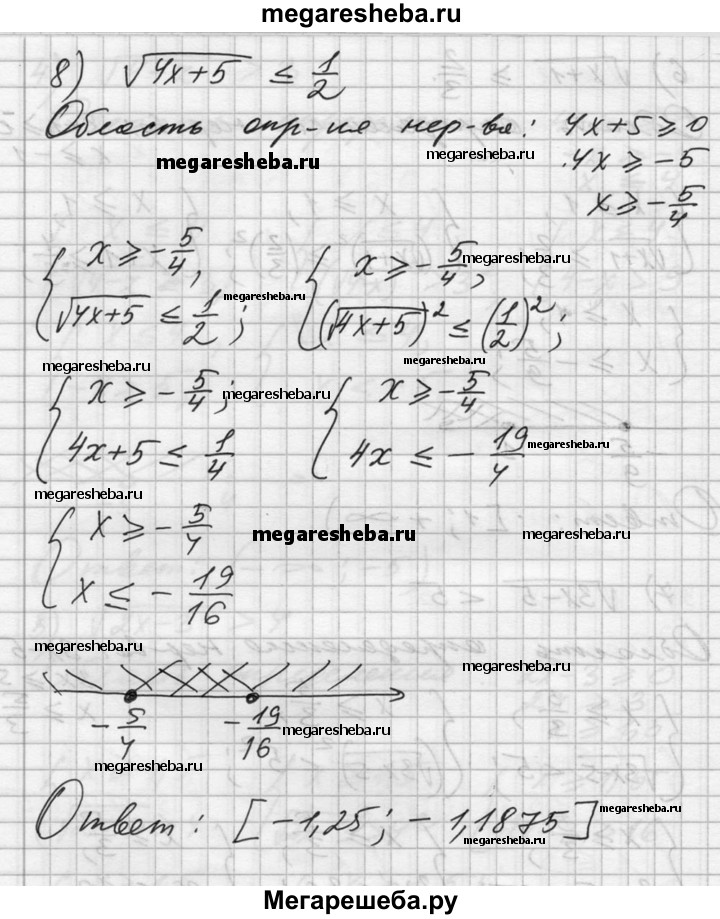 megaresheba.ru
8) √(4x+5) ≤ 1/2
Область опр-ия нер-ва: 4x+5 ⩾ 0
megaresheba.ru megaresheba.ru 4x ⩾ -5
x ⩾ -5/4
{ x ⩾ -5/4, { x ⩾ -5/4, megaresheba.ru
√(4x+5) ≤ 1/2; megaresheba.ru (√(4x+5))² ≤ (1/2)²;
megaresheba.ru megaresheba.ru
{ x ⩾ -5/4; megaresheba.ru { x ⩾ -5/4 megaresheba.ru
4x+5 ≤ 1/4 4x ≤ -19/4 megaresheba.ru
megaresheba.ru
{ x ⩾ -5/4 megaresheba.ru megaresheba.ru
x ≤ -19/16
megaresheba.ru megaresheba.ru
-5/4 -19/16 megaresheba.ru
megaresheba.ru
Ответ: [-1,25; -1,1875] megaresheba.ru
megaresheba.ru
Мегарешеба.ру